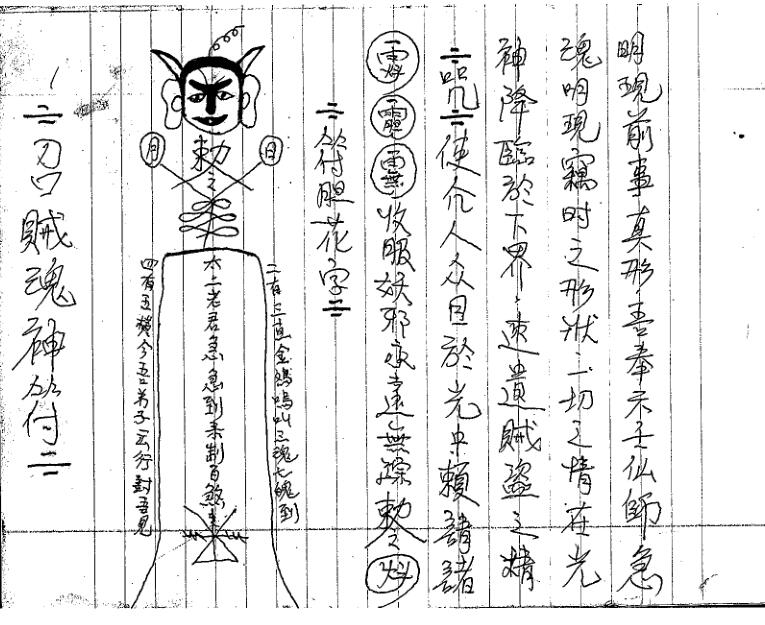 明現前事真形吾奉示子仙師急
魂明現竊時之形狀一切之情在光
神降臨於下界速遣賊盜之精
咒 使个人众目於光中賴請諸
收服妖邪永遠無踪敕
符胆花字
日
敕
月
二右三直金鷄鳴叫三魂七魄到
太上老君急急到来制百煞
四有五横今吾弟子云行封吾見
賊魂神符